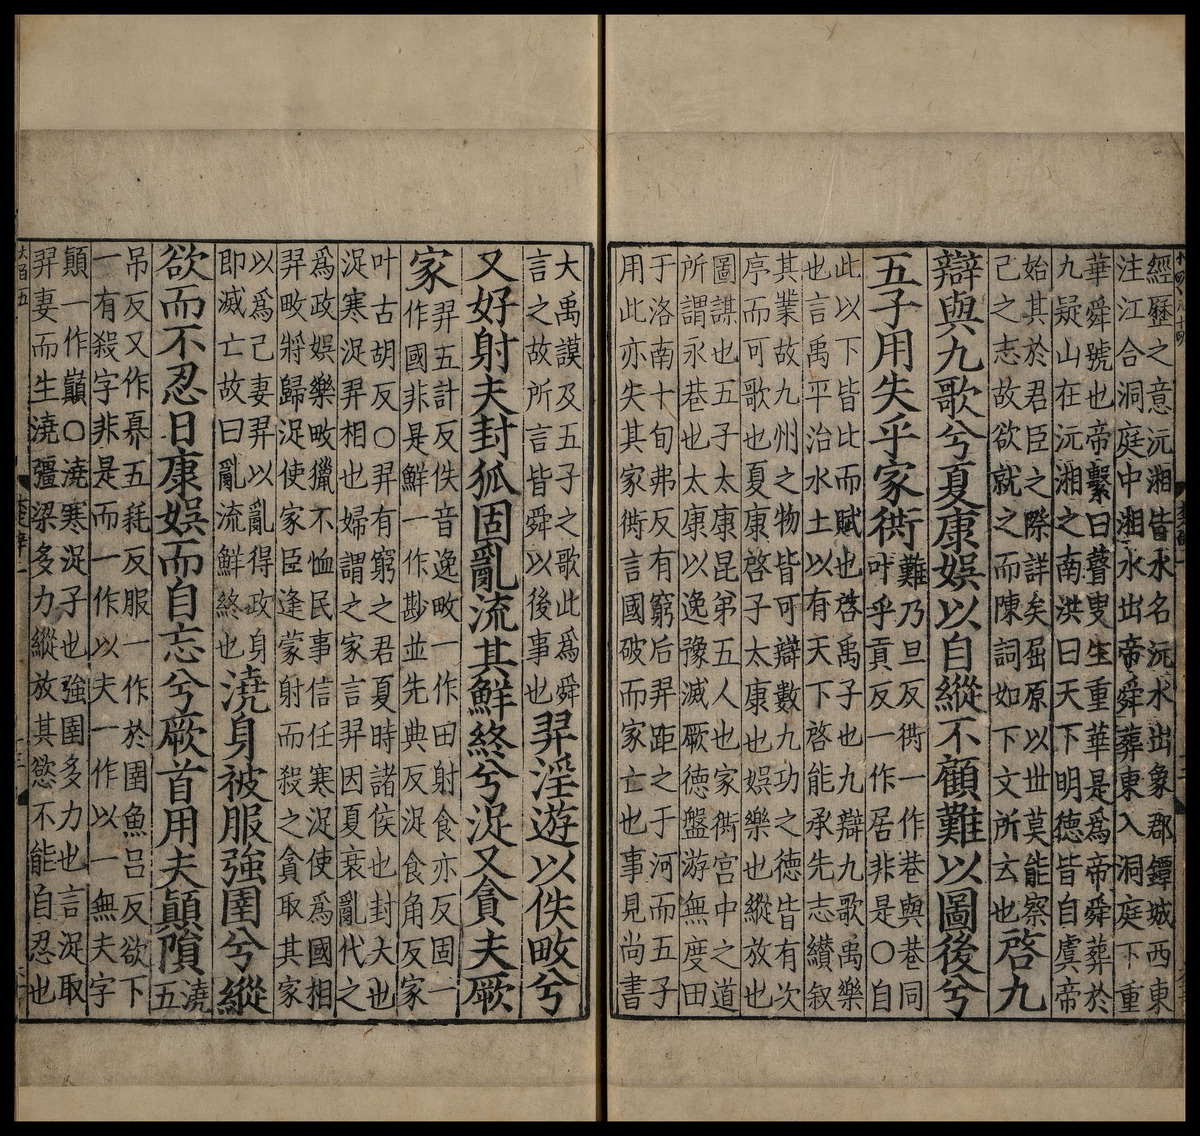 經歷之意沅湘皆水名沅水出象郡鐔城西東
注江合洞庭中湘水出帝舜葬東入洞庭下重
華舜號也帝繫曰瞽叟生重華是爲帝舜葬於
九疑山在沅湘之南洪曰天下明德皆自虞帝
始其於君臣之際詳矣屈原以世莫能察
己之志故欲就之而陳詞如下文所云也
啓九
辯與九歌兮夏康娛以自縱不顧難以圖後兮
五子用失乎家衖
難乃旦反衖一作巷與巷同
叶乎貢反一作居非是○自
此以下皆比而賦也啓禹子也九辯九歌禹樂
也言禹平治水土以有天下啓能承先志纉叙
其業故九州之物皆可辯數九功之德皆有次
序而可歌也夏康啓子太康也娛樂也縱放也
圖謀也五子太康昆弟五人也家衖宮中之道
所謂永巷也太康以逸豫滅厥德盤游無度田
于洛南十旬弗反有窮后羿距之于河而五子
用此亦失其家衖言國破而家亡也事見尚書
大禹謨及五子之歌此爲舜
言之故所言皆舜以後事也
羿淫遊以佚畋兮
又好射夫封狐固亂流其鮮終兮浞又貪夫厥
家
羿五計反佚音逸畋一作田射食亦反固一
作國非是鮮一作尠並先典反浞食角反家
叶古胡反○羿有窮之君夏時諸侯也封大也
浞寒浞羿相也婦謂之家言羿因夏衰亂代之
爲政娛樂畋獵不恤民事信任寒浞使爲國相
羿畋將歸浞使家臣逢蒙射而殺之貪取其家
以爲己妻羿以亂得政身
即滅亡故曰亂流鮮終也
澆身被服強圉兮縱
欲而不忍日康娛而自忘兮厥首用夫顛隕
澆
五
吊反又作奡五耗反服一作於圉魚呂反欲下
一有殺字非是而一作以夫一作以一無夫字
顛一作巔○澆寒浞子也強圉多力也言浞取
羿妻而生澆彊梁多力縱放其慾不能自忍也